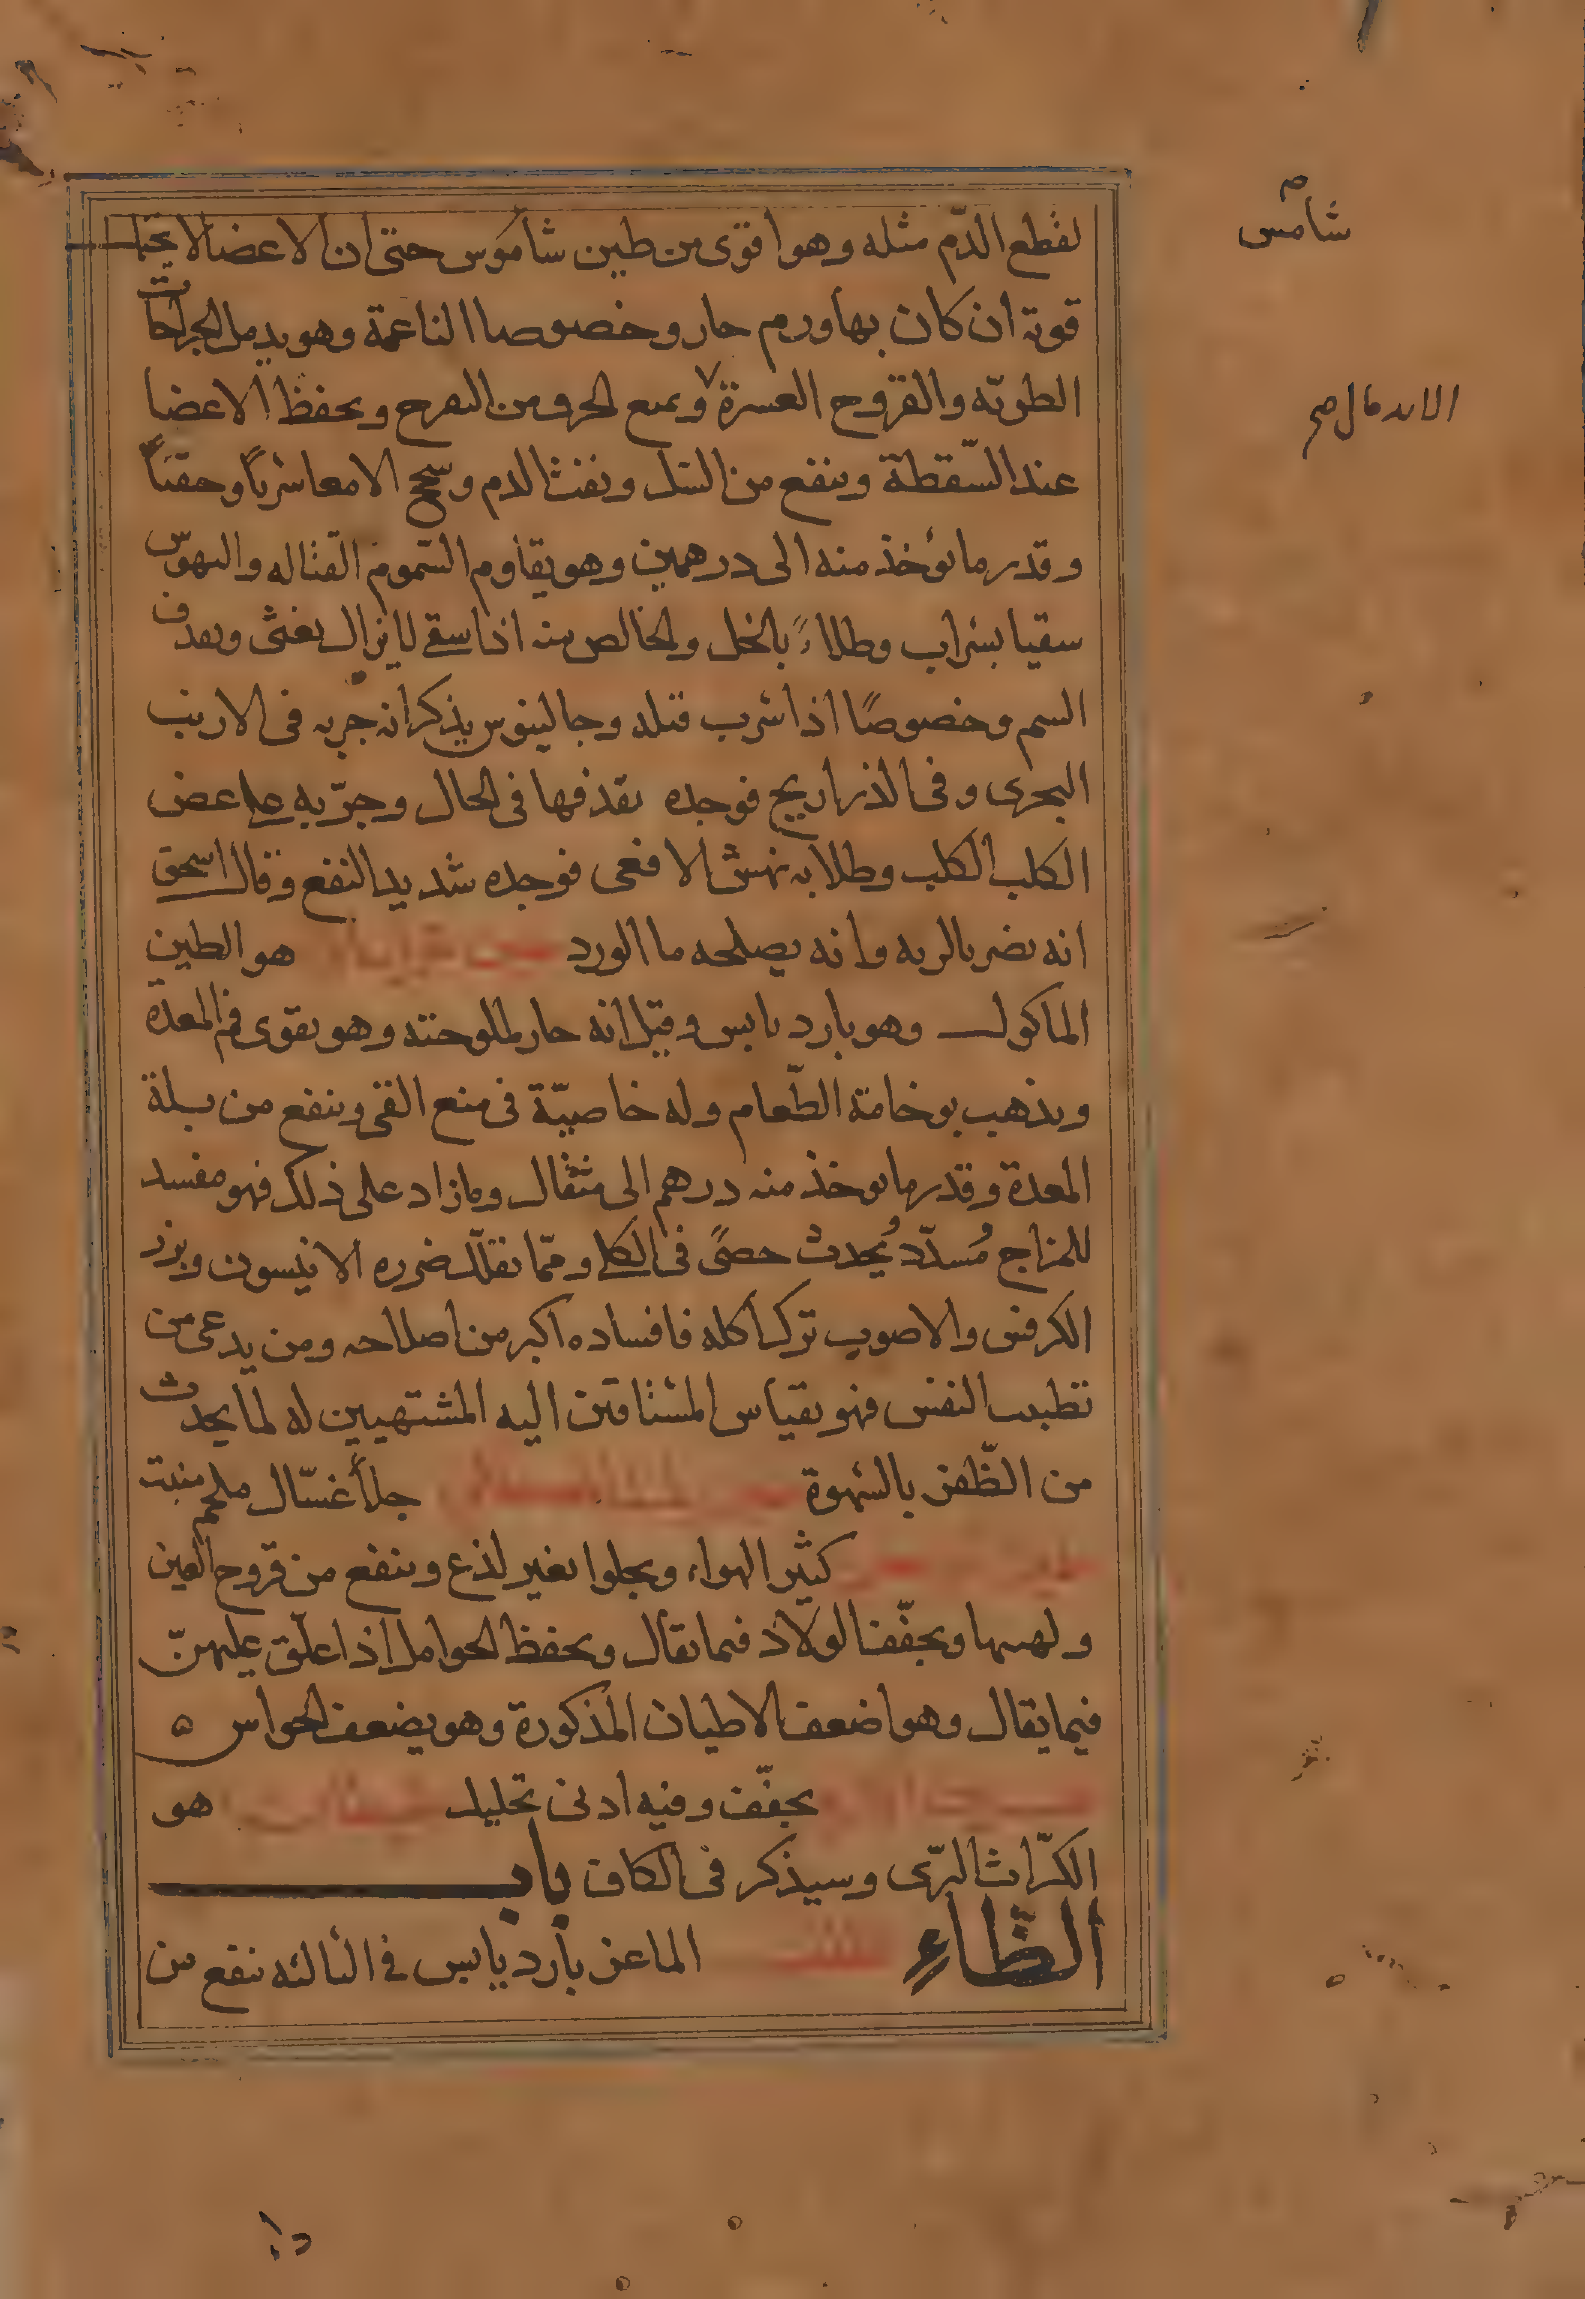 شامس
لقطع الدّم مثله وهو اقوى من طين شاموس حتى ان الاعضا لا تحتمل
قوته ان كان بها ورم حار وخصوصا الناعمة وهو يدمل الجراحات
الطريّه والقروح العسرة ويمنع الحرق من التقرح ويحفظ الاعضا
الاندمال صح
عند السّقطة وينفع من السّل ونفث الدم وسحج الامعا شرباً وحقناً
وقدر ما يؤخذ منه الى درهمين وهو يقاوم السّموم القتاله والنهوش
سقيا بشراب وطلاءً بالخل والخالص منه اذا سقى لا يزال يغثى ويقذف
السم وخصوصًا اذا شرب قبله وجالينوس يذكر انه جربه فى الارنب
البحرى وفى الذراريح فوجده يقذفها فى الحال وجرّبه على عض
الكلب الكلب وطلا به نهش الافعى فوجده شديد النفع وقال اسحق
انه يضر بالريه وانه يصلحه ما الورد هو الطين
الماكول وهو بارد يابس وقيل انه حار لملوحته وهو يقوى فم المعدة
ويذهب بوخامة الطّعام وله خاصيّة فى منع القى وينفع من بلة
المعدة وقدر ما يوخذ منه درهم الى مثقال وما زاد على ذلك فهو مفسد
للمزاج مُسدّد يُحدث حصىً فى الكلى وممّا يقلّل ضرره الانيسون وبزر
الكرفس والاصوب ترك اكله فافساده اكبر من اصلاحه ومن يدعى من
تطييب النفس فهو بقياس المشتاقين اليه المشتهيين له لما يحدث
من الظّفر بالشهوة جلاء غسّال ملحم منبت
كثير الهواء ويجلوا بغير لذع وينفع من قروح العين
ويجفّف الولاد فيما يقال ويحفظ الحوامل اذا علّق عليهنّ
فيما يقال وهو اضعف الاطيان المذكورة وهو يضعف الحواس ه
يجفّف وفيه ادنى تحليل هو
الكرّاث البرّى وسيذكر فى الكاف باب
الظّاءِ الماعز بارد يابس فى الثالثه ينفع من